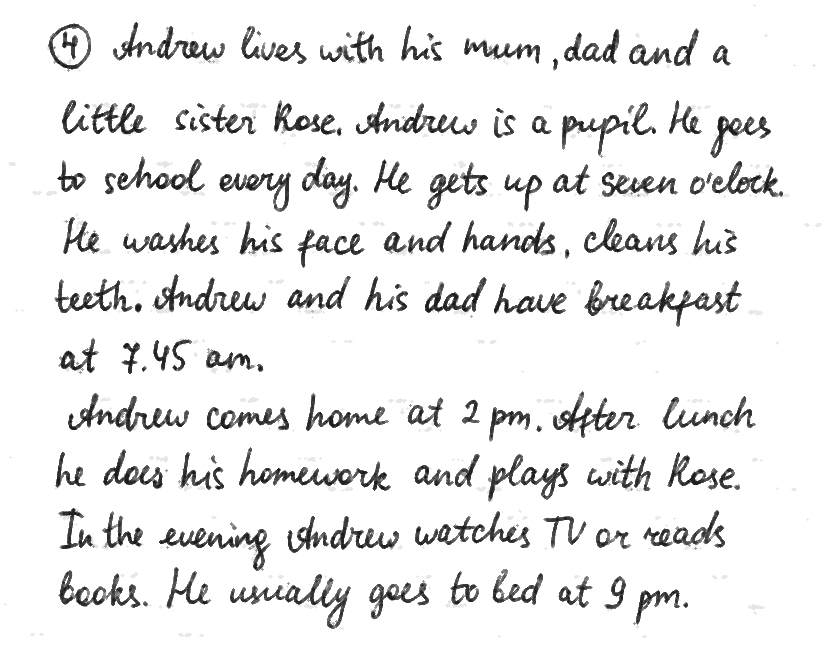 ④ Andrew lives with his mum, dad and a
little sister Rose. Andrew is a pupil. He goes
to school every day. He gets up at seven o'clock.
He washes his face and hands, cleans his
teeth. Andrew and his dad have breakfast
at 7.45 am.
Andrew comes home at 2 pm. After lunch
he does his homework and plays with Rose.
In the evening Andrew watches TV or reads
books. He usually goes to bed at 9 pm.